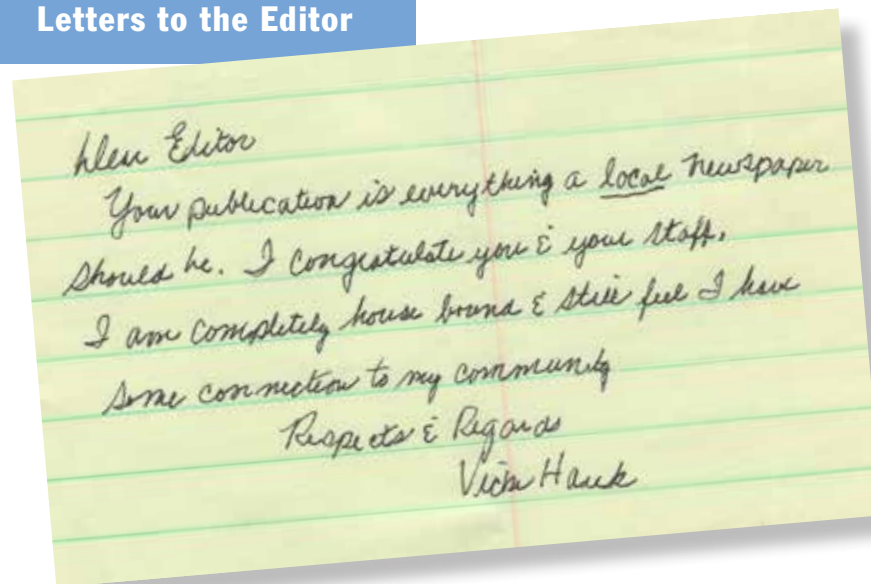 Letters to the Editor
Dear Editor
Your publication is everything a local newspaper
should be. I congratulate you & your staff.
I am completely house bound & still feel I have
some connection to my community
Respects & Regards
Vicki Hauk